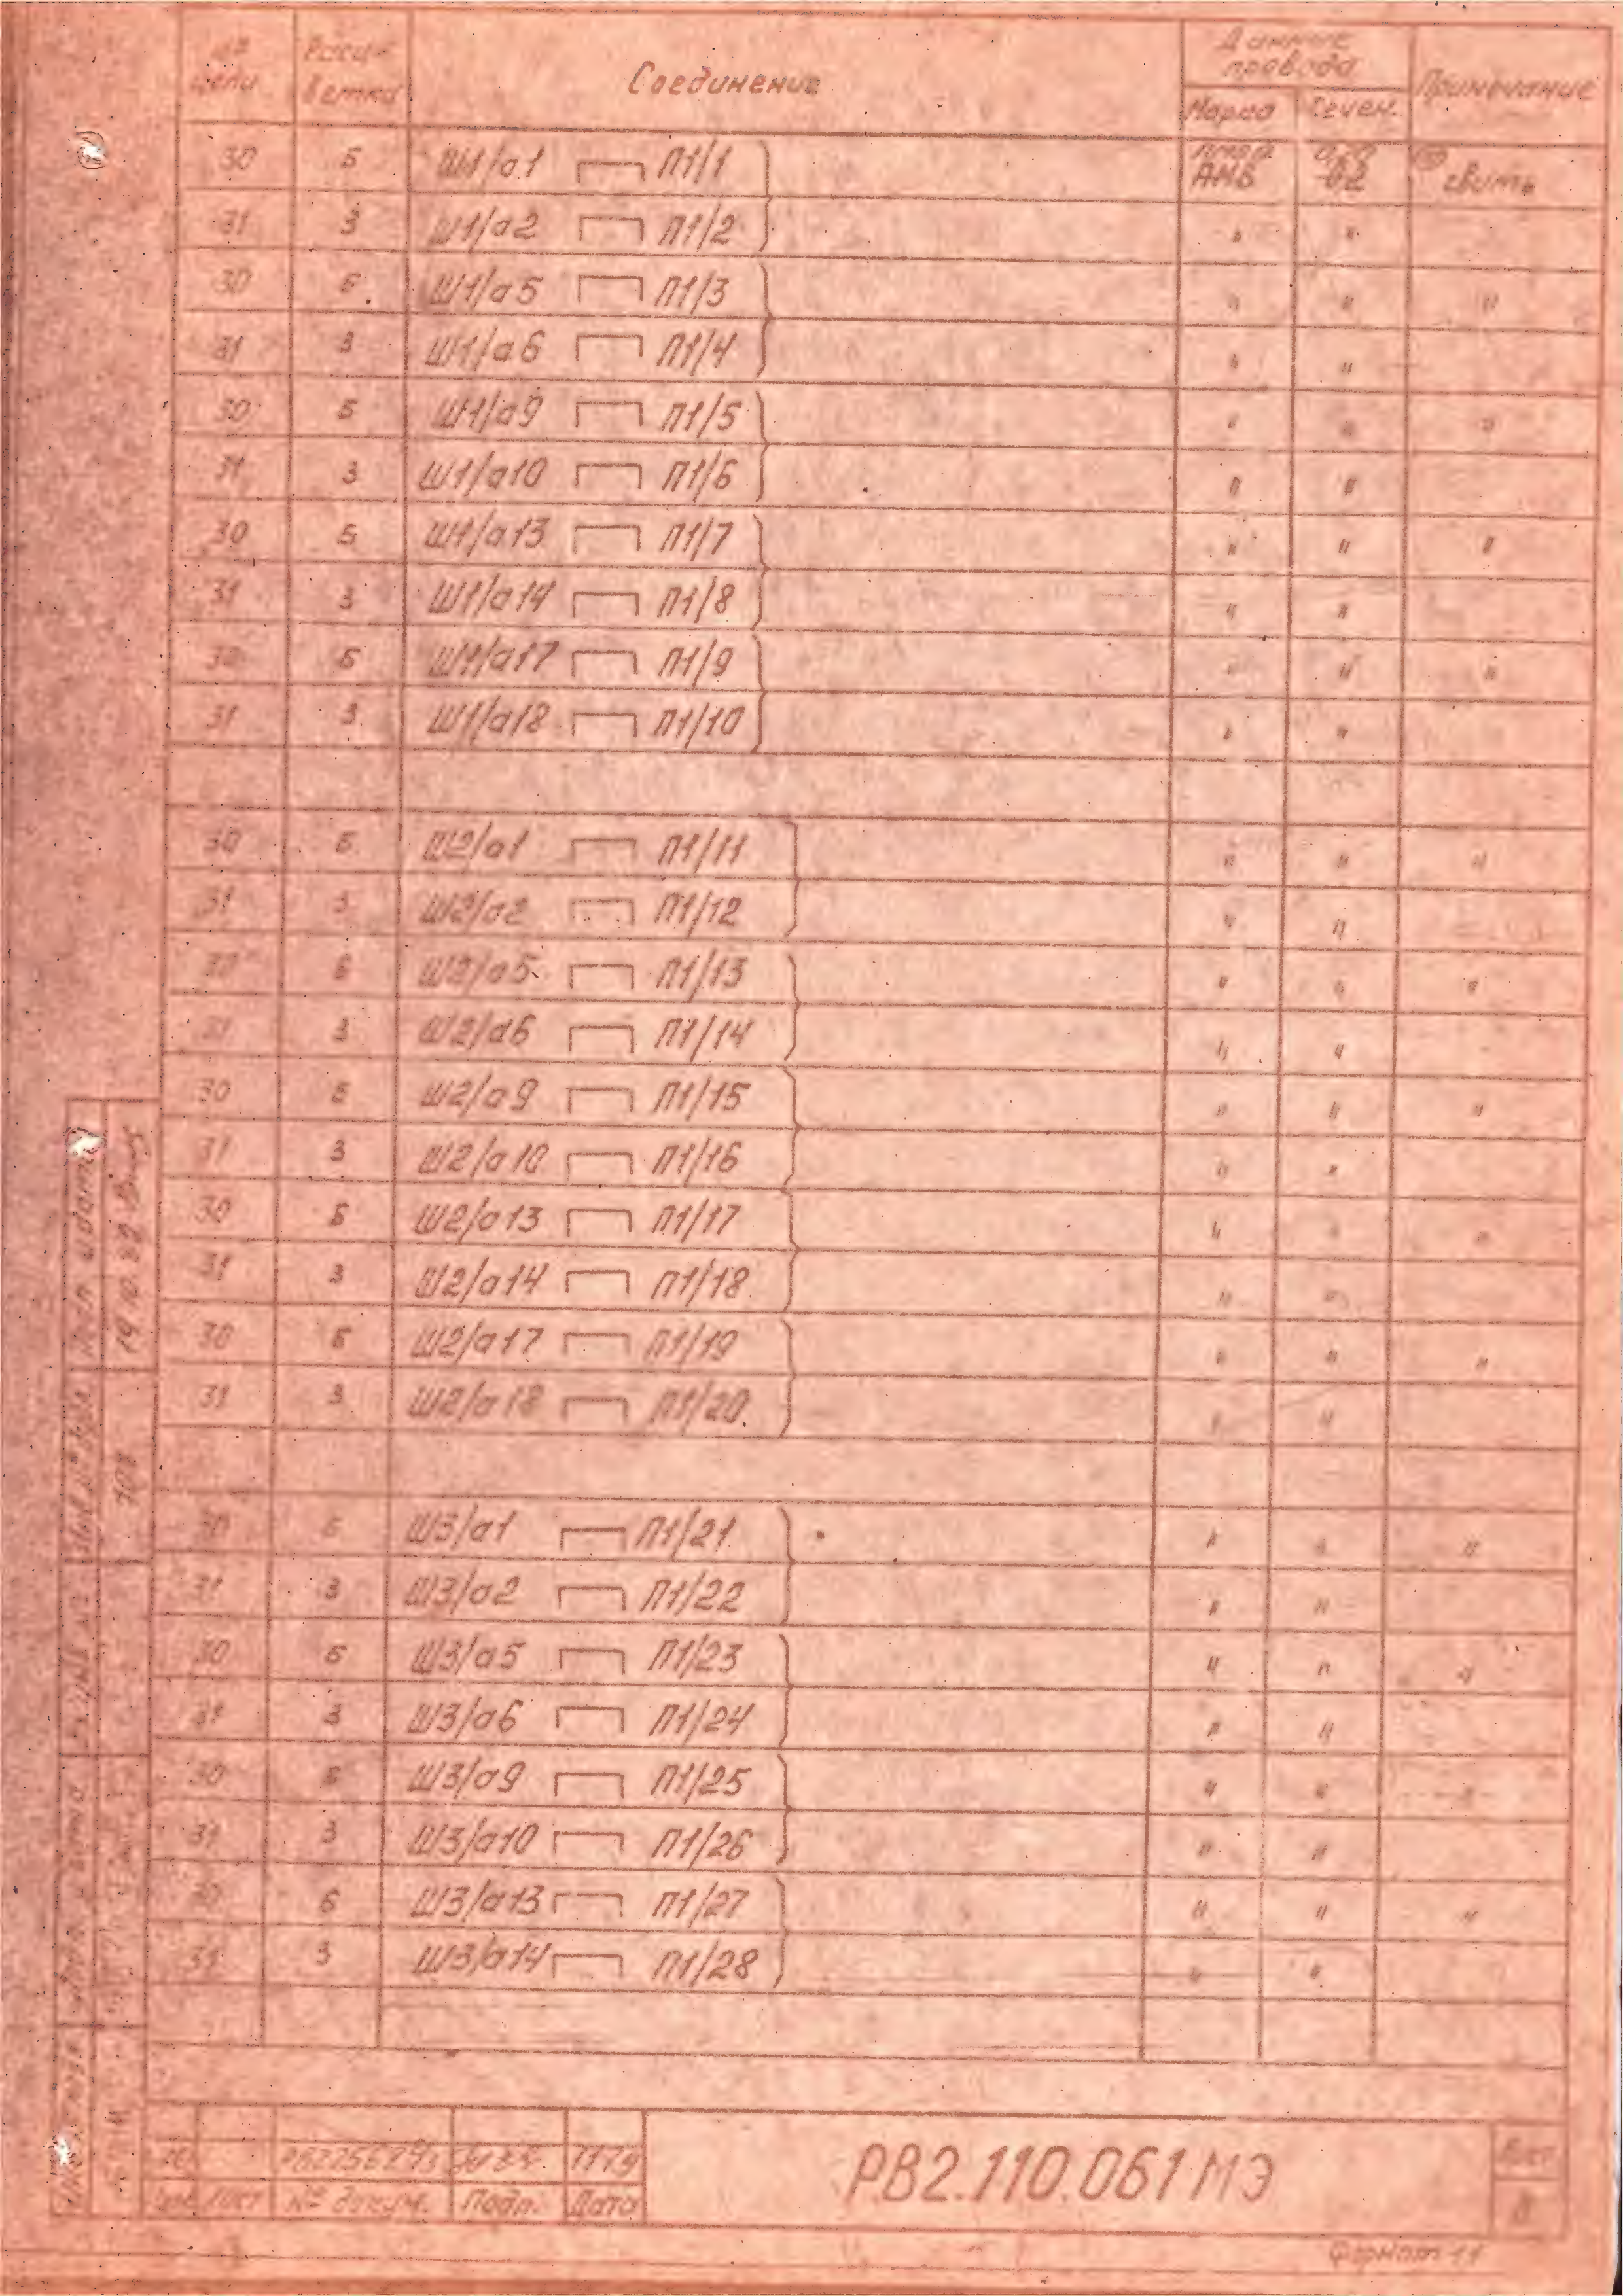 № цепи Расцветка Соединение Данные провода Примечание
Марка Сечен.
30 Б Ш1/а1 П1/1 АМВ 0,2 свить
31 З Ш1/а2 П1/2 " "
30 Б Ш1/а5 П1/3 " " "
31 З Ш1/а6 П1/4 " "
30 Б Ш1/а9 П1/5 " " "
31 З Ш1/а10 П1/6 " "
30 Б Ш1/а13 П1/7 " " "
31 З Ш1/а14 П1/8 " "
30 Б Ш1/а17 П1/9 " " "
31 З Ш1/а18 П1/10 " "
30 Б Ш2/а1 П1/11 " " "
31 З Ш2/а2 П1/12 " "
30 Б Ш2/а5 П1/13 " " "
31 З Ш2/а6 П1/14 " "
30 Б Ш2/а9 П1/15 " " "
31 З Ш2/а10 П1/16 " "
30 Б Ш2/а13 П1/17 " " "
31 З Ш2/а14 П1/18 " "
30 Б Ш2/а17 П1/19 " " "
31 З Ш2/а18 П1/20 " "
30 Б Ш3/а1 П1/21 " " "
31 З Ш3/а2 П1/22 " "
30 Б Ш3/а5 П1/23 " " "
31 З Ш3/а6 П1/24 " "
30 Б Ш3/а9 П1/25 " " "
31 З Ш3/а10 П1/26 " "
30 Б Ш3/а13 П1/27 " " "
31 З Ш3/а14 П1/28 " "
Лист № докум. Подп. Дата
РВ2.110.061МЭ
Лист
8
Формат 11